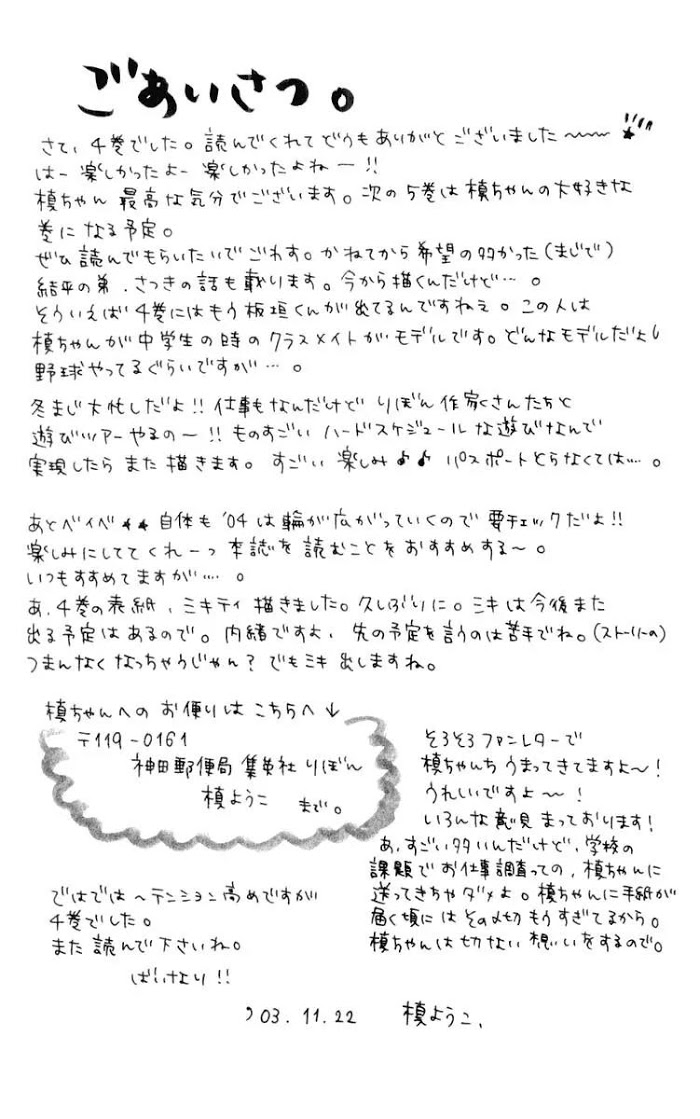 ごあいさつ。
さて、4巻でした。読んでくれてどうもありがとございました〜〜
はー楽しかったよー楽しかったよねー!!
槙ちゃん 最高な気分でございます。次の5巻は槙ちゃんの大好きな
巻になる予定。
ぜひ読んでもらいたいでごわす。かねてから希望の多かった(まじで)
結平の弟、さつきの話も載ります。今から描くんだけど…。
そういえば4巻にはもう板垣くんが出てるんですねえ。この人は
槙ちゃんが中学生の時のクラスメイトがモデルです。どんなモデルだよし
野球やってるぐらいですが…。
冬まじ大忙しだよ!!仕事もなんだけど りぼん作家さんたちと
遊びツアーやるの〜!!ものすごい ハードスケジュールな遊びなんで
実現したら また描きます。すごい 楽しみ♪♪ パスポートとらなくては…。
あとベイベ★★自体も '04は輪が広がっていくので 要チェックだよ!!
楽しみにしててくれーっ 本誌を読むことをおすすめする〜。
いつもすすめてますが…。
あ、4巻の表紙、ミキティ描きました。久しぶりに。ミキは今後また
出る予定はあるので。内緒ですよ、先の予定を言うのは苦手でね。(ストーリーの)
つまんなくなっちゃうじゃん?でもミキ出しますね。
槙ちゃんへの お便りは こちらへ↓
〒119-0161
神田郵便局 集英社 りぼん
槙ようこ まで。
そろそろファンレターで
槙ちゃんち うまってきてますよ〜!
うれいですよ〜!
いろんな意見まっております!
あ、すごい多いんだけど、学校の
課題で お仕事調査っての、槙ちゃんに
送ってきちゃダメよ。槙ちゃんに手紙が
届く頃にはその〆切もうすぎてるから。
槙ちゃんは切ない想いをするので。
ではでは〜テンション高めですが
4巻でした。
また読んで下さいね。
ばいちより!!
'03.11.22 槙ようこ、